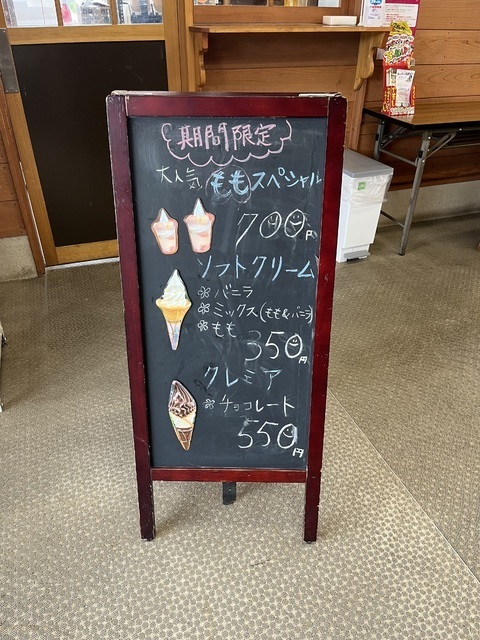 期間限定
大人気 ももスペシャル
700円
ソフトクリーム
バニラ
ミックス(もも&バニラ)
もも
350円
クレミア
チョコレート
550円